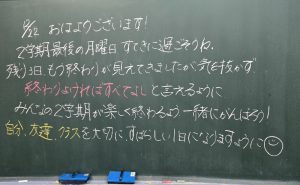 12/22 おはようございます!
2学期最後の月曜日 すてきに過ごそうね。
残り3日、もう終わりが見えてきましたが気を抜かず
終わりよければすべてよし と言えるように
みんなの2学期が楽しく終わるよう 一緒にがんばろう!
自分、友達、クラスを大切に すばらしい1日になりますように